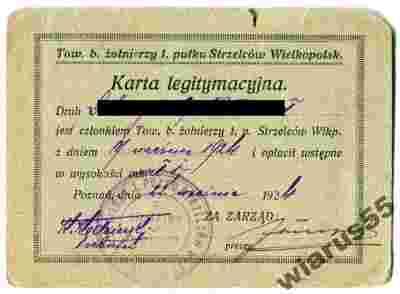 Tow. b. żołnierzy 1. pułku Strzelców Wielkopolsk.
Karta legitymacyjna.
Druh
jest członkiem Tow. b. żołnierzy 1. p. Strzelców Wlkp.
z dniem 9 wrzesień 1924 i opłacił wstępne
w wysokości
Poznań, dnia września 1924
ZA ZARZĄD
prezes
wiarus55